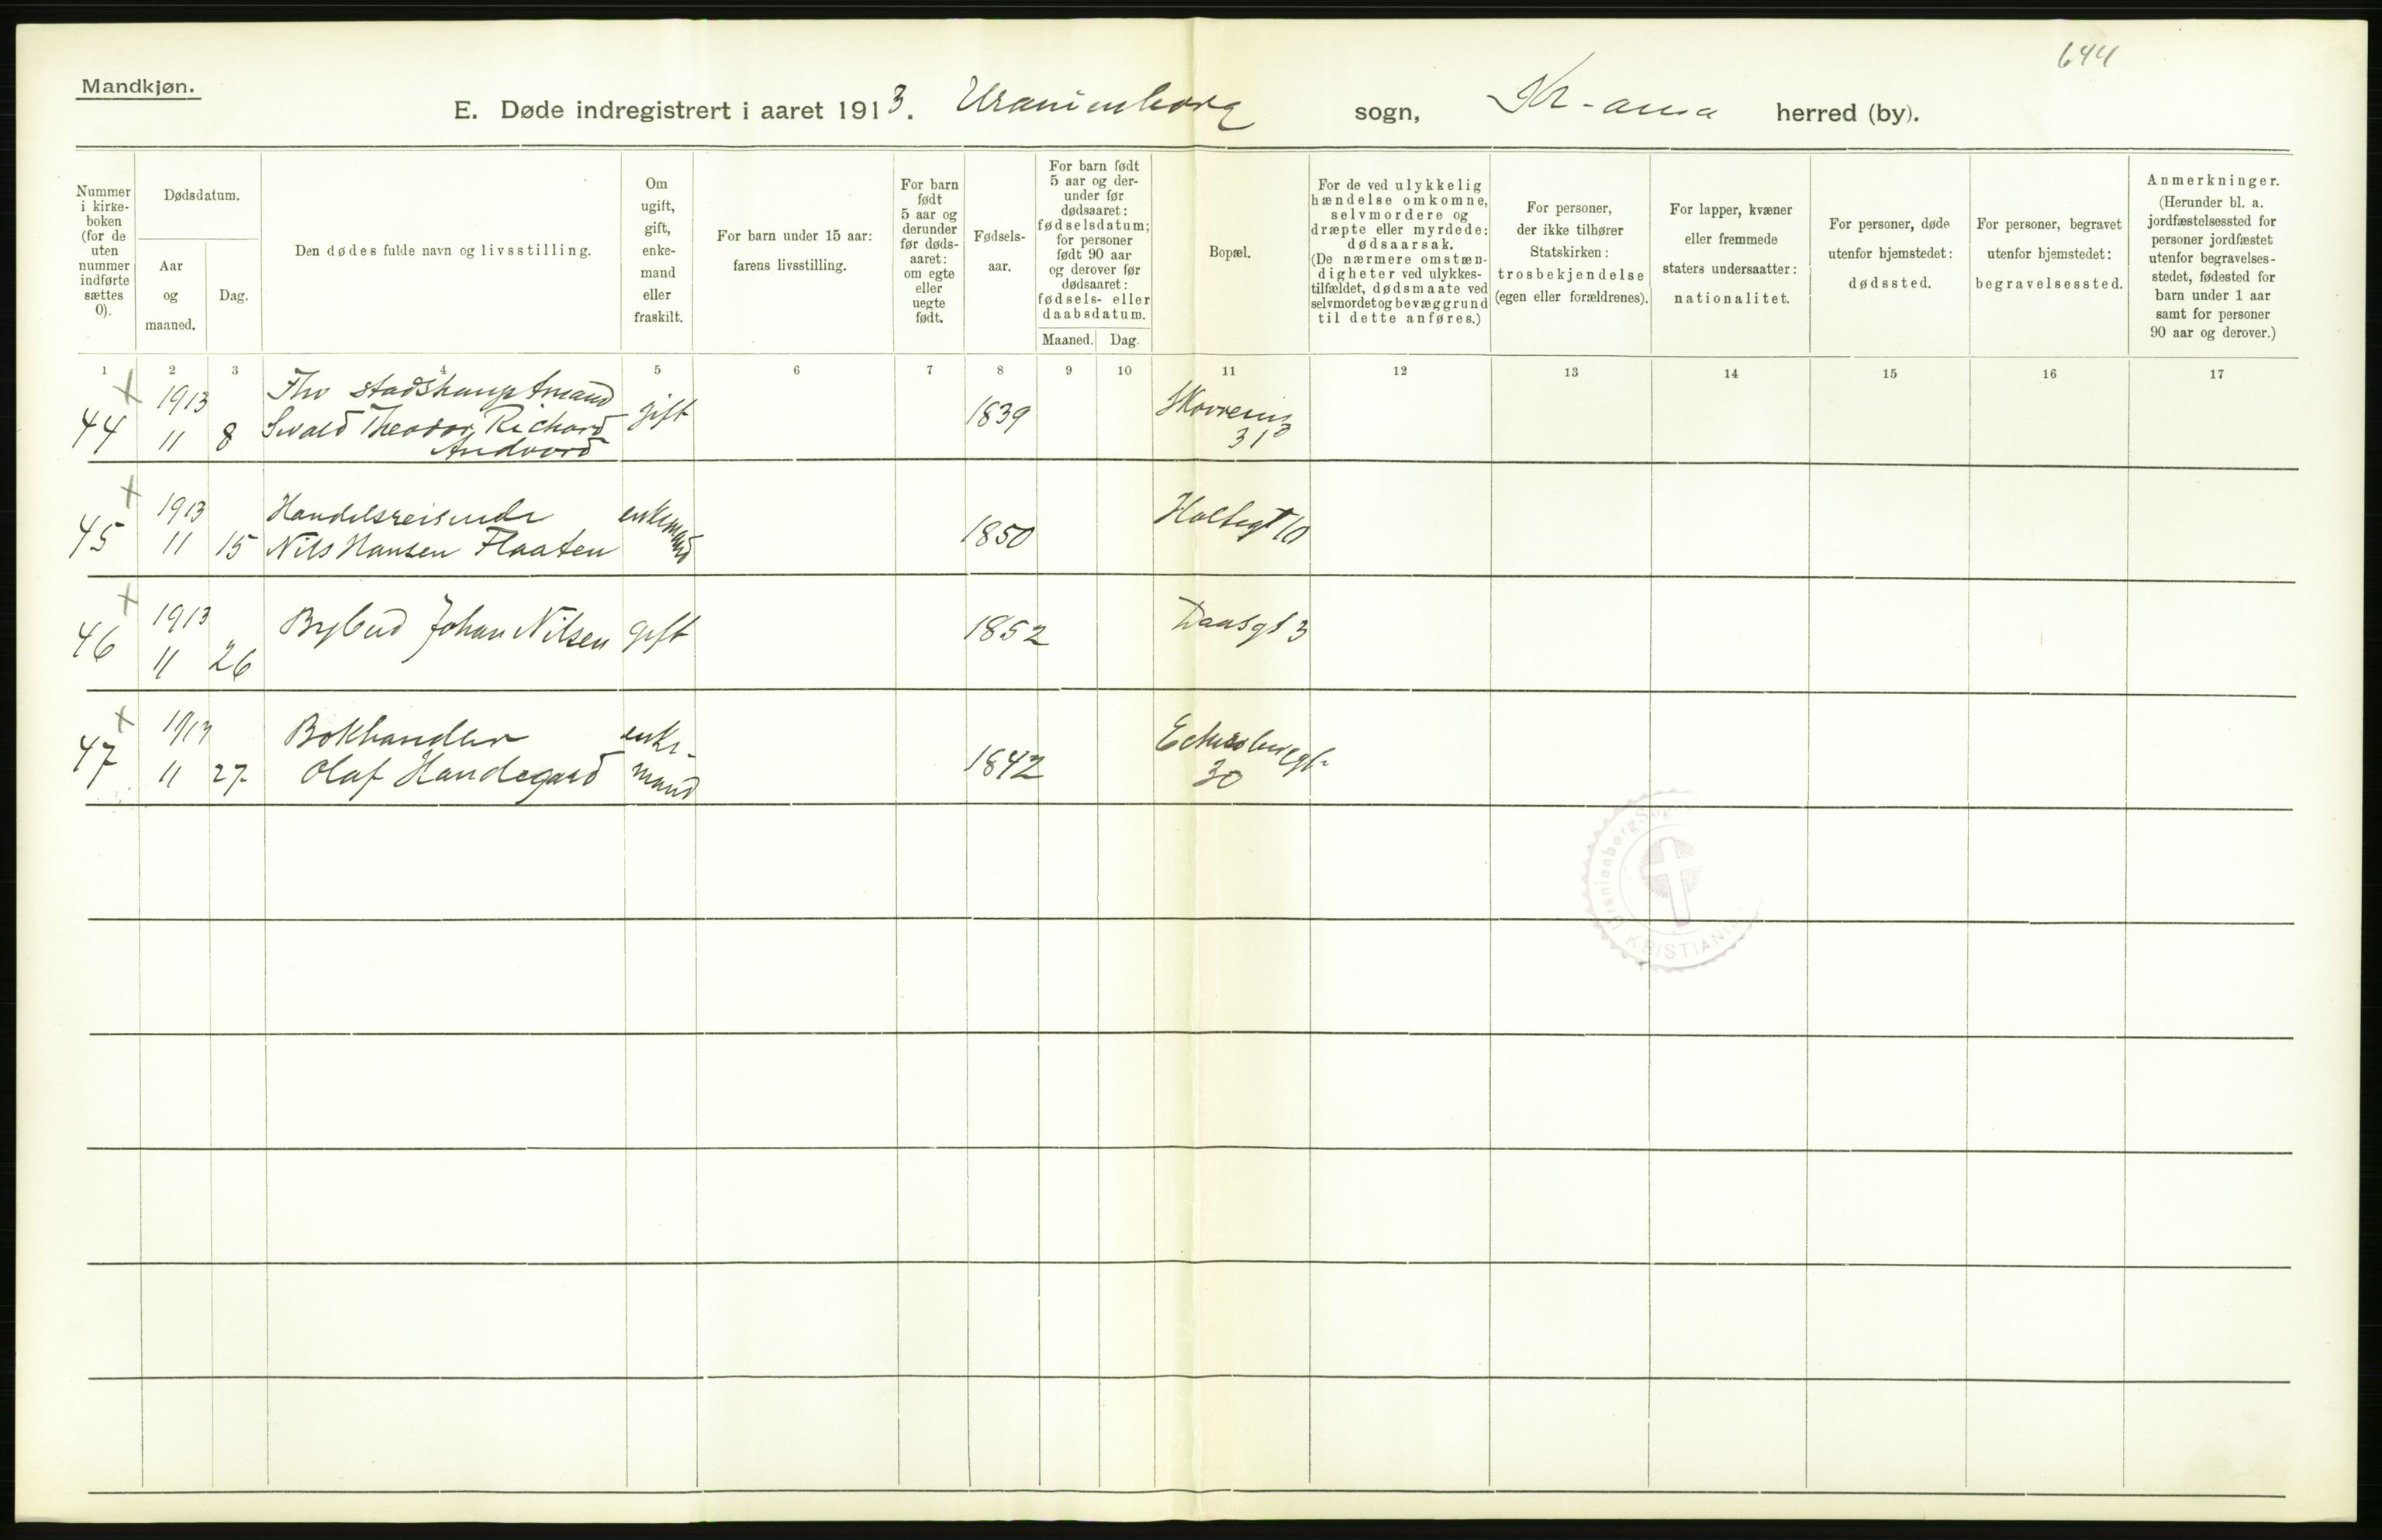 644
Mandkjøn.
E. Døde indregistrert i aaret 1913. Uranienborg sogn, Kr-ania herred (by).
Nummer i kirke-boken (for de uten nummer indførte sættes 0).
Dødsdatum.
Aar og maaned.
Dag.
Den dødes fulde navn og livsstilling.
Om ugift, gift, enke-mand eller fraskilt.
For barn under 15 aar: farens livsstilling.
For barn født 5 aar og derunder før døds-aaret: om egte eller uegte født.
Fødsels-aar.
For barn født 5 aar og der-under før dødsaaret: fødselsdatum; for personer født 90 aar og derover før dødsaaret: fødsels- eller daabsdatum.
Maaned.
Dag.
Bopæl.
For de ved ulykkelig hændelse omkomne, selvmordere og dræpte eller myrdede: dødsaarsak. (De nærmere omstæn-digheter ved ulykkes-tilfældet, dødsmaate ved selvmordet og bevæggrund til dette anføres.)
For personer, der ikke tilhører Statskirken: trosbekjendelse (egen eller forældrenes).
For lapper, kvæner eller fremmede staters undersaatter: nationalitet.
For personer, døde utenfor hjemstedet: dødssted.
For personer, begravet utenfor hjemstedet: begravelsessted.
Anmerkninger. (Herunder bl. a. jordfæstelsessted for personer jordfæstet utenfor begravelses-stedet, fødested for barn under 1 aar samt for personer 90 aar og derover.)
1 2 3 4 5 6 7 8 9 10 11 12 13 14 15 16 17
+ 1913 stadshauptmand gift 1839
44 11 8 Theodor Richard 31
Andvord
+ 1913 Handelsreisende enkemand Holtegt 10
45 11 15 Nils Hansen Flaaten 1850
+ 1913 Bybud Johan Nilsen gift 1852 Daasgt 3
46 11 26
+ Bokhandler enke-
47 11 27 Olaf Handegaard mand 1842 30
Uranienborg
KRISTIANIA